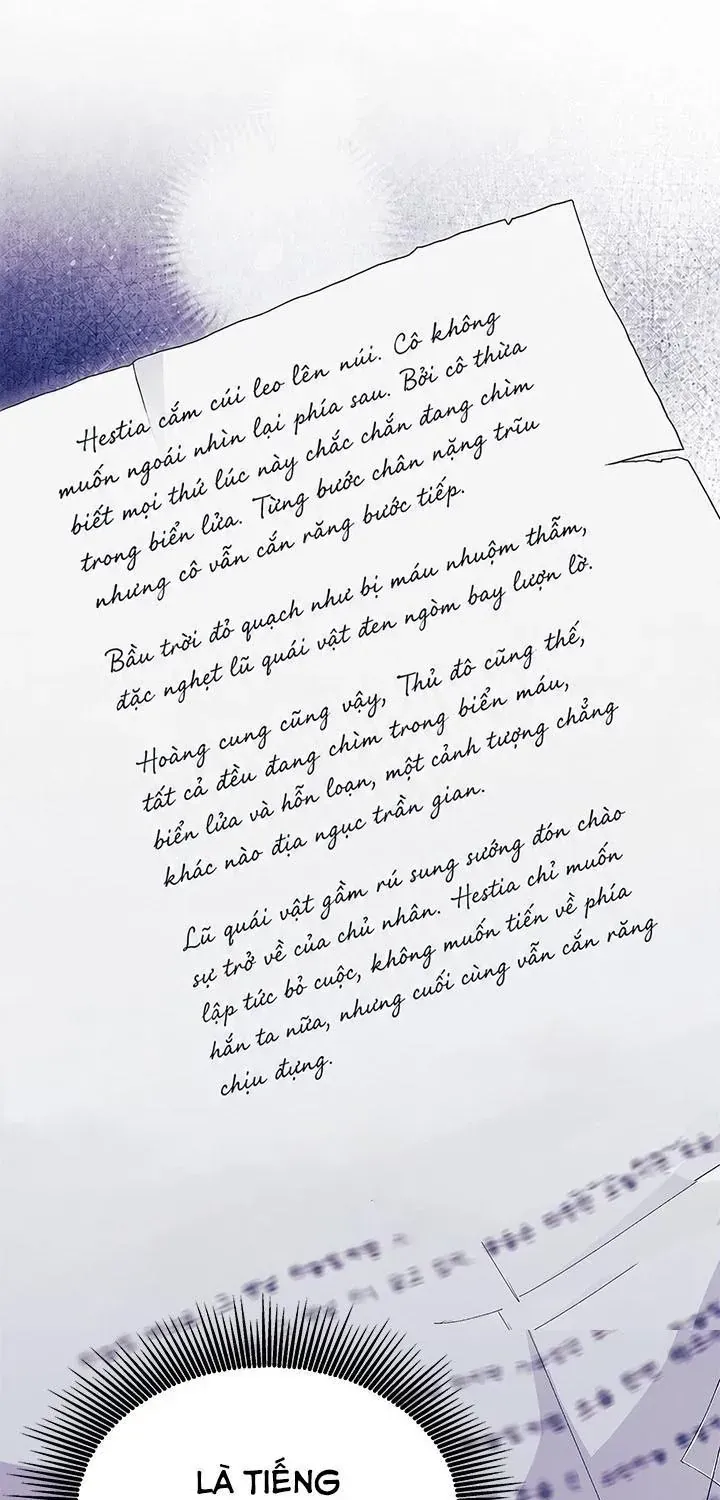 Hestia cắm cúi leo lên núi. Cô không
muốn ngoái nhìn lại phía sau. Bởi cô thừa
biết mọi thứ lúc này chắc chắn đang chìm
trong biển lửa. Từng bước chân nặng trĩu
nhưng cô vẫn cắn răng bước tiếp.
Bầu trời đỏ quạch như bị máu nhuộm thẫm,
đặc nghẹt lũ quái vật đen ngòm bay lượn lờ.
Hoàng cung cũng vậy, Thủ đô cũng thế,
tất cả đều đang chìm trong biển máu,
biển lửa và hỗn loạn, một cảnh tượng chẳng
khác nào địa ngục trần gian.
Lũ quái vật gầm rú sung sướng đón chào
sự trở về của chủ nhân. Hestia chỉ muốn
lập tức bỏ cuộc, không muốn tiến về phía
hắn ta nữa, nhưng cuối cùng vẫn cắn răng
chịu đựng.
LÀ TIẾNG